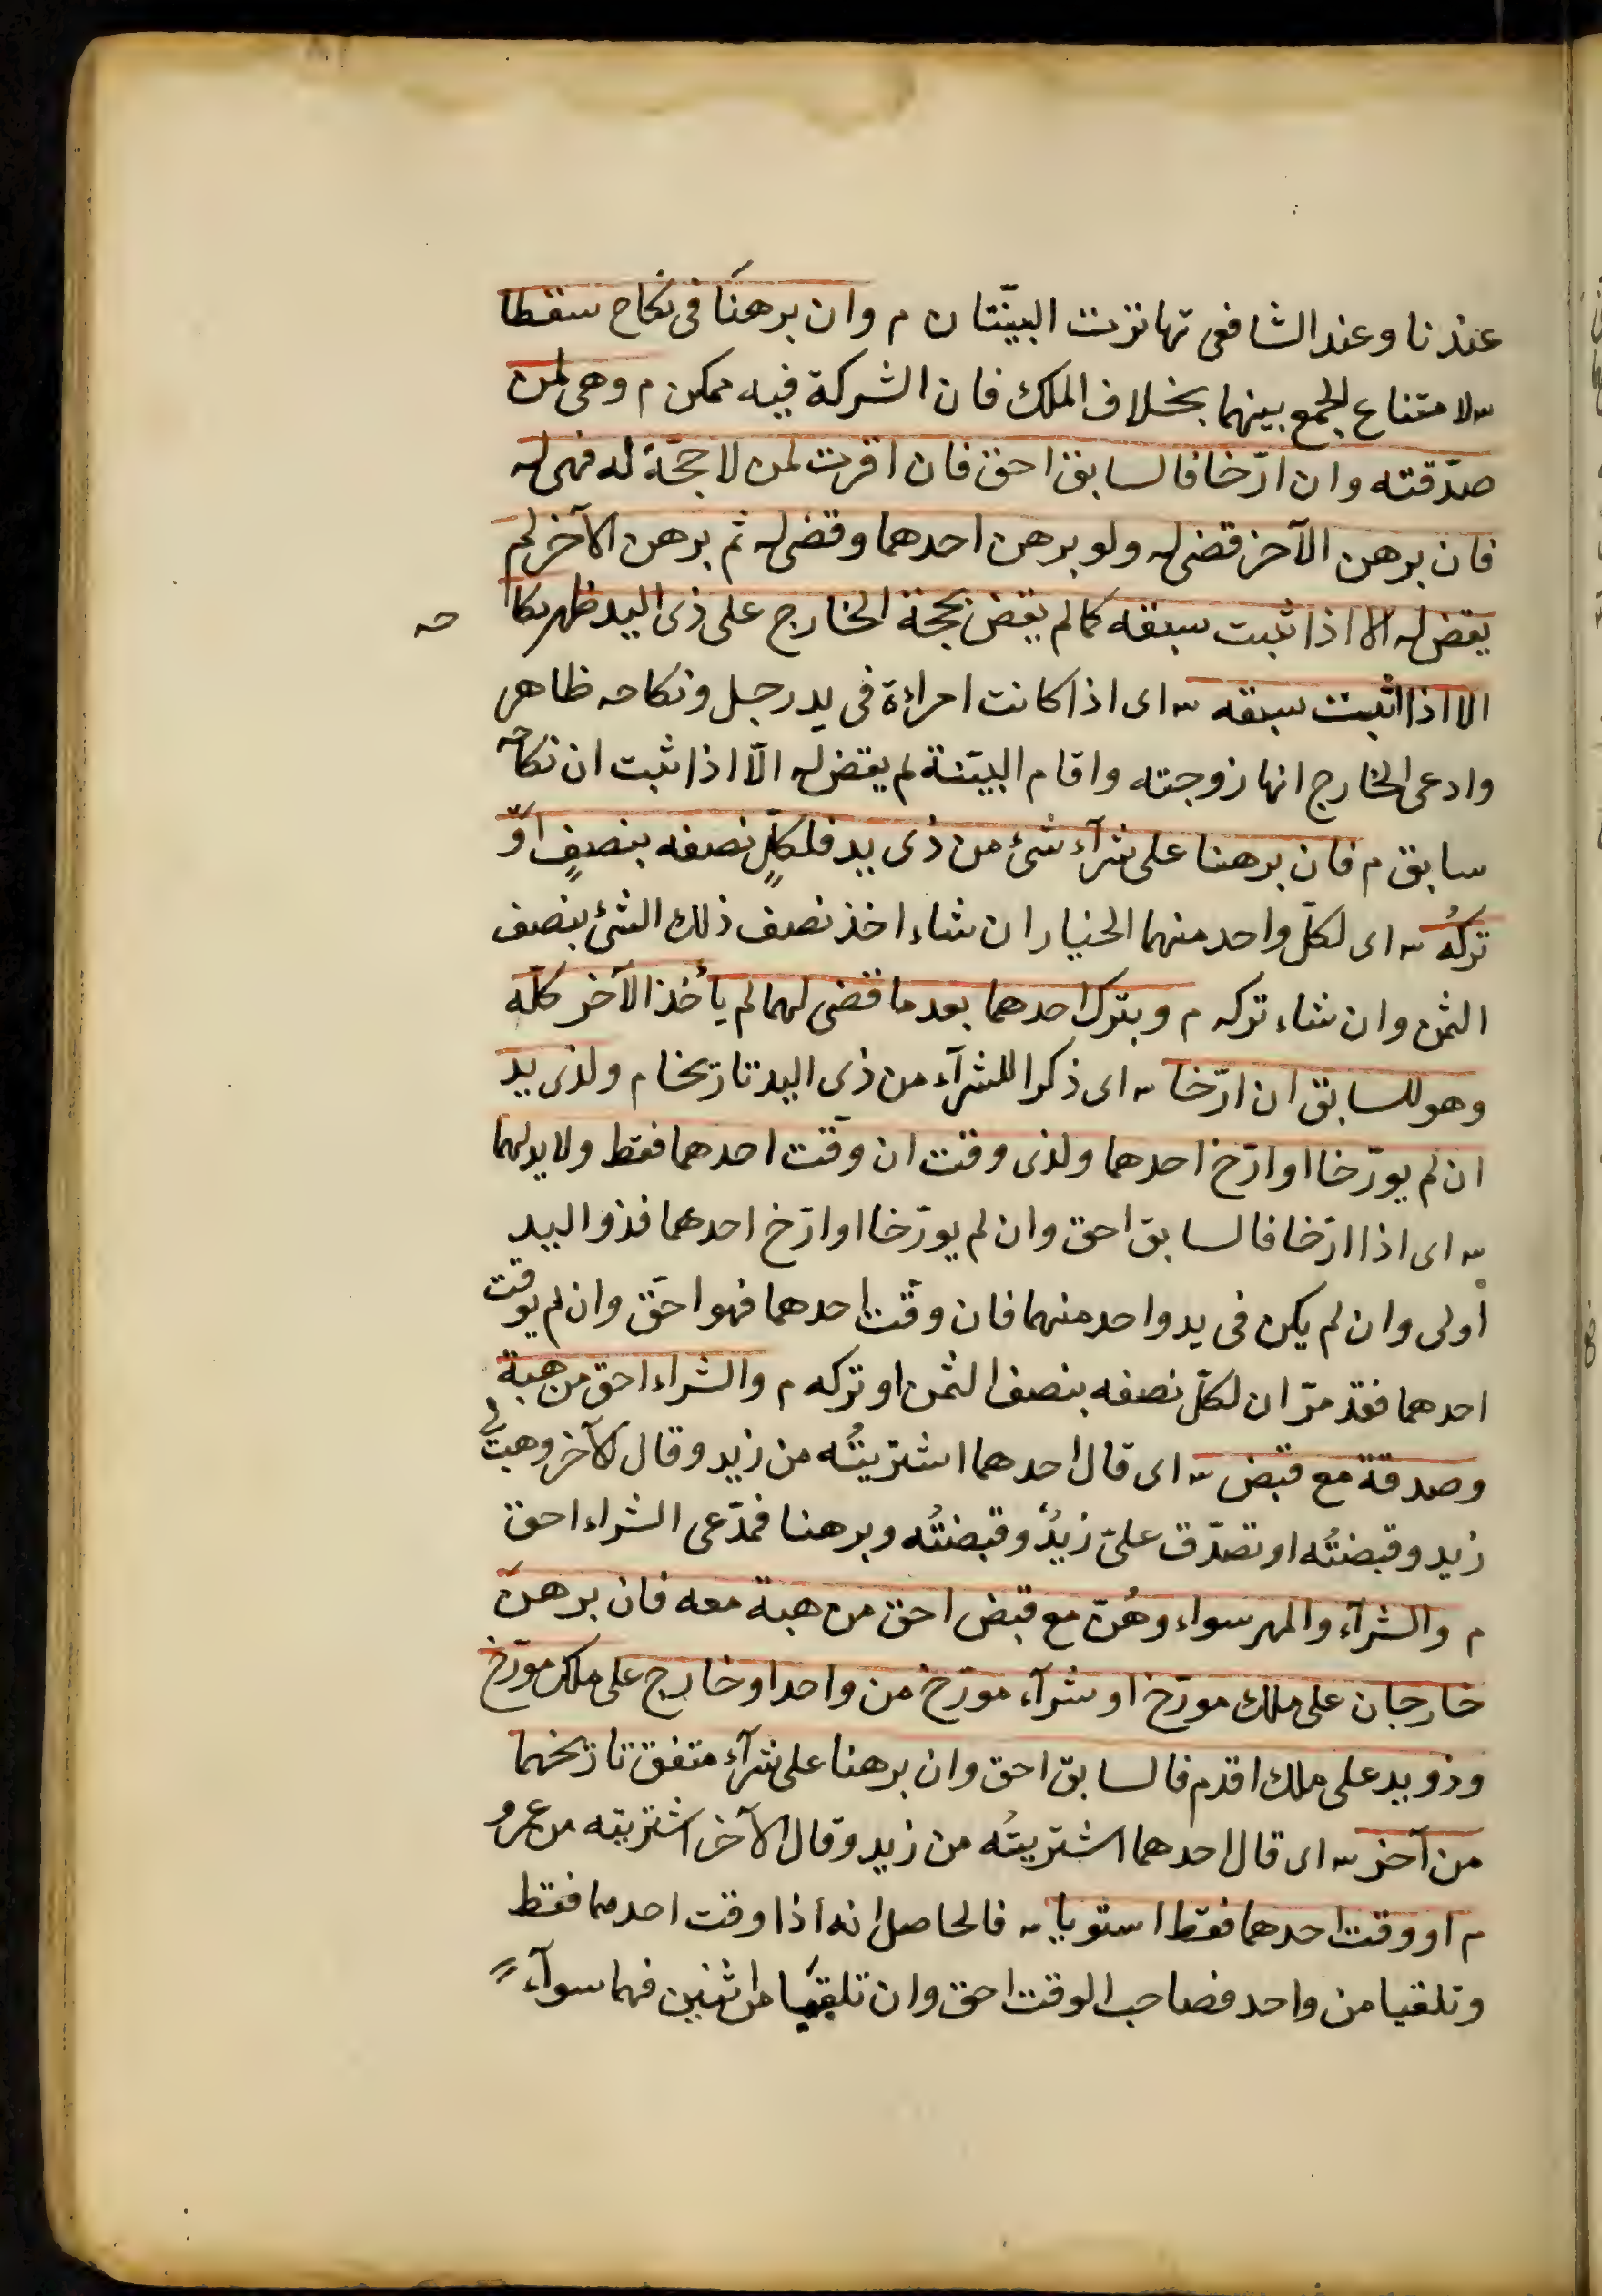 عندنا وعند الشافعى تهاترت البيّنتان م وان برهنَا فى نكاح سقطا
س لامتناع الجمع بينهما بخلاف الملك فان الشركة فيه ممكن م وهى لمن
صدّقته وان ارّخا فالسابق احق فان اقرت لمن لا حجّة له فهى له
فان برهن الآخر قضى له ولو برهن احدهما وقضى له ثم برهن الآخر لم
يقض له الا اذا ثبت سبقه كما لم يقض بحجة الخارج على ذى اليد ظهر نكا
حه
الا اذا اثبت سبقه س اى اذا كانت امراءة فى يد رجل ونكاحه ظاهر
وادعى الخارج انها زوجته واقام البيّنة لم يقض له الّا اذا ثبت ان نكاحه
سابق م فان برهنا على شرآء شئ من ذى يد فلكلٍّ نصفه بنصفٍ اوّ
تركُه س اى لكلّ واحد منهما الخيار ان شاء اخذ نصف ذلك الشئ بنصف
الثمن وان شاء تركه م وبترك احدهما بعد ما قضى لهما لم يأخذ الآخر كلّه
وهو للسابق ان ارّخا س اى ذكرا للشرآء من ذى اليد تاريخا م ولذى يد
ان لم يورّخا او ارّخ احدهما ولذى وقت ان وقّت احدهما فقط ولا يد لهما
س اى اذا ارّخا فالسابق احق وان لم يورّخا او ارّخ احدهما فذو اليد
أولى وان لم يكن فى يد واحد منهما فان وقّت احدهما فهو احقّ وان لم يوقت
احدهما فقد مرّ ان لكلّ نصفه بنصف الثمن او تركه م والشراء احق من هبة
وصدقة مع قبض س اى قال احدهما اشتريتُه من زيد وقال الآخر وهبت لى
زيد وقبضتُه او تصدّق علىّ زيدٌ وقبضتُه وبرهنا فمدّعى الشراء احق
م والشرآء والمهر سواء وهُنّ مع قبض احق من هبة معه فان برهن
خارجان على ملك مورّخ او شرآء مورّخ من واحد او خارج على ملك مورّخ
وذو يد على ملك اقدم فالسابق احق وان برهنا على شرآء متفق تاريخهما
من آخر س اى قال احدهما اشتريتُه من زيد وقال الآخر اشتريته من عمرو
م او وقت احدهما فقط استويا س فالحاصل انه اذا وقت احدهما فقط
وتلقيا من واحد فصاحب الوقت احق وان تلقيا من اثنين فهما سوآء